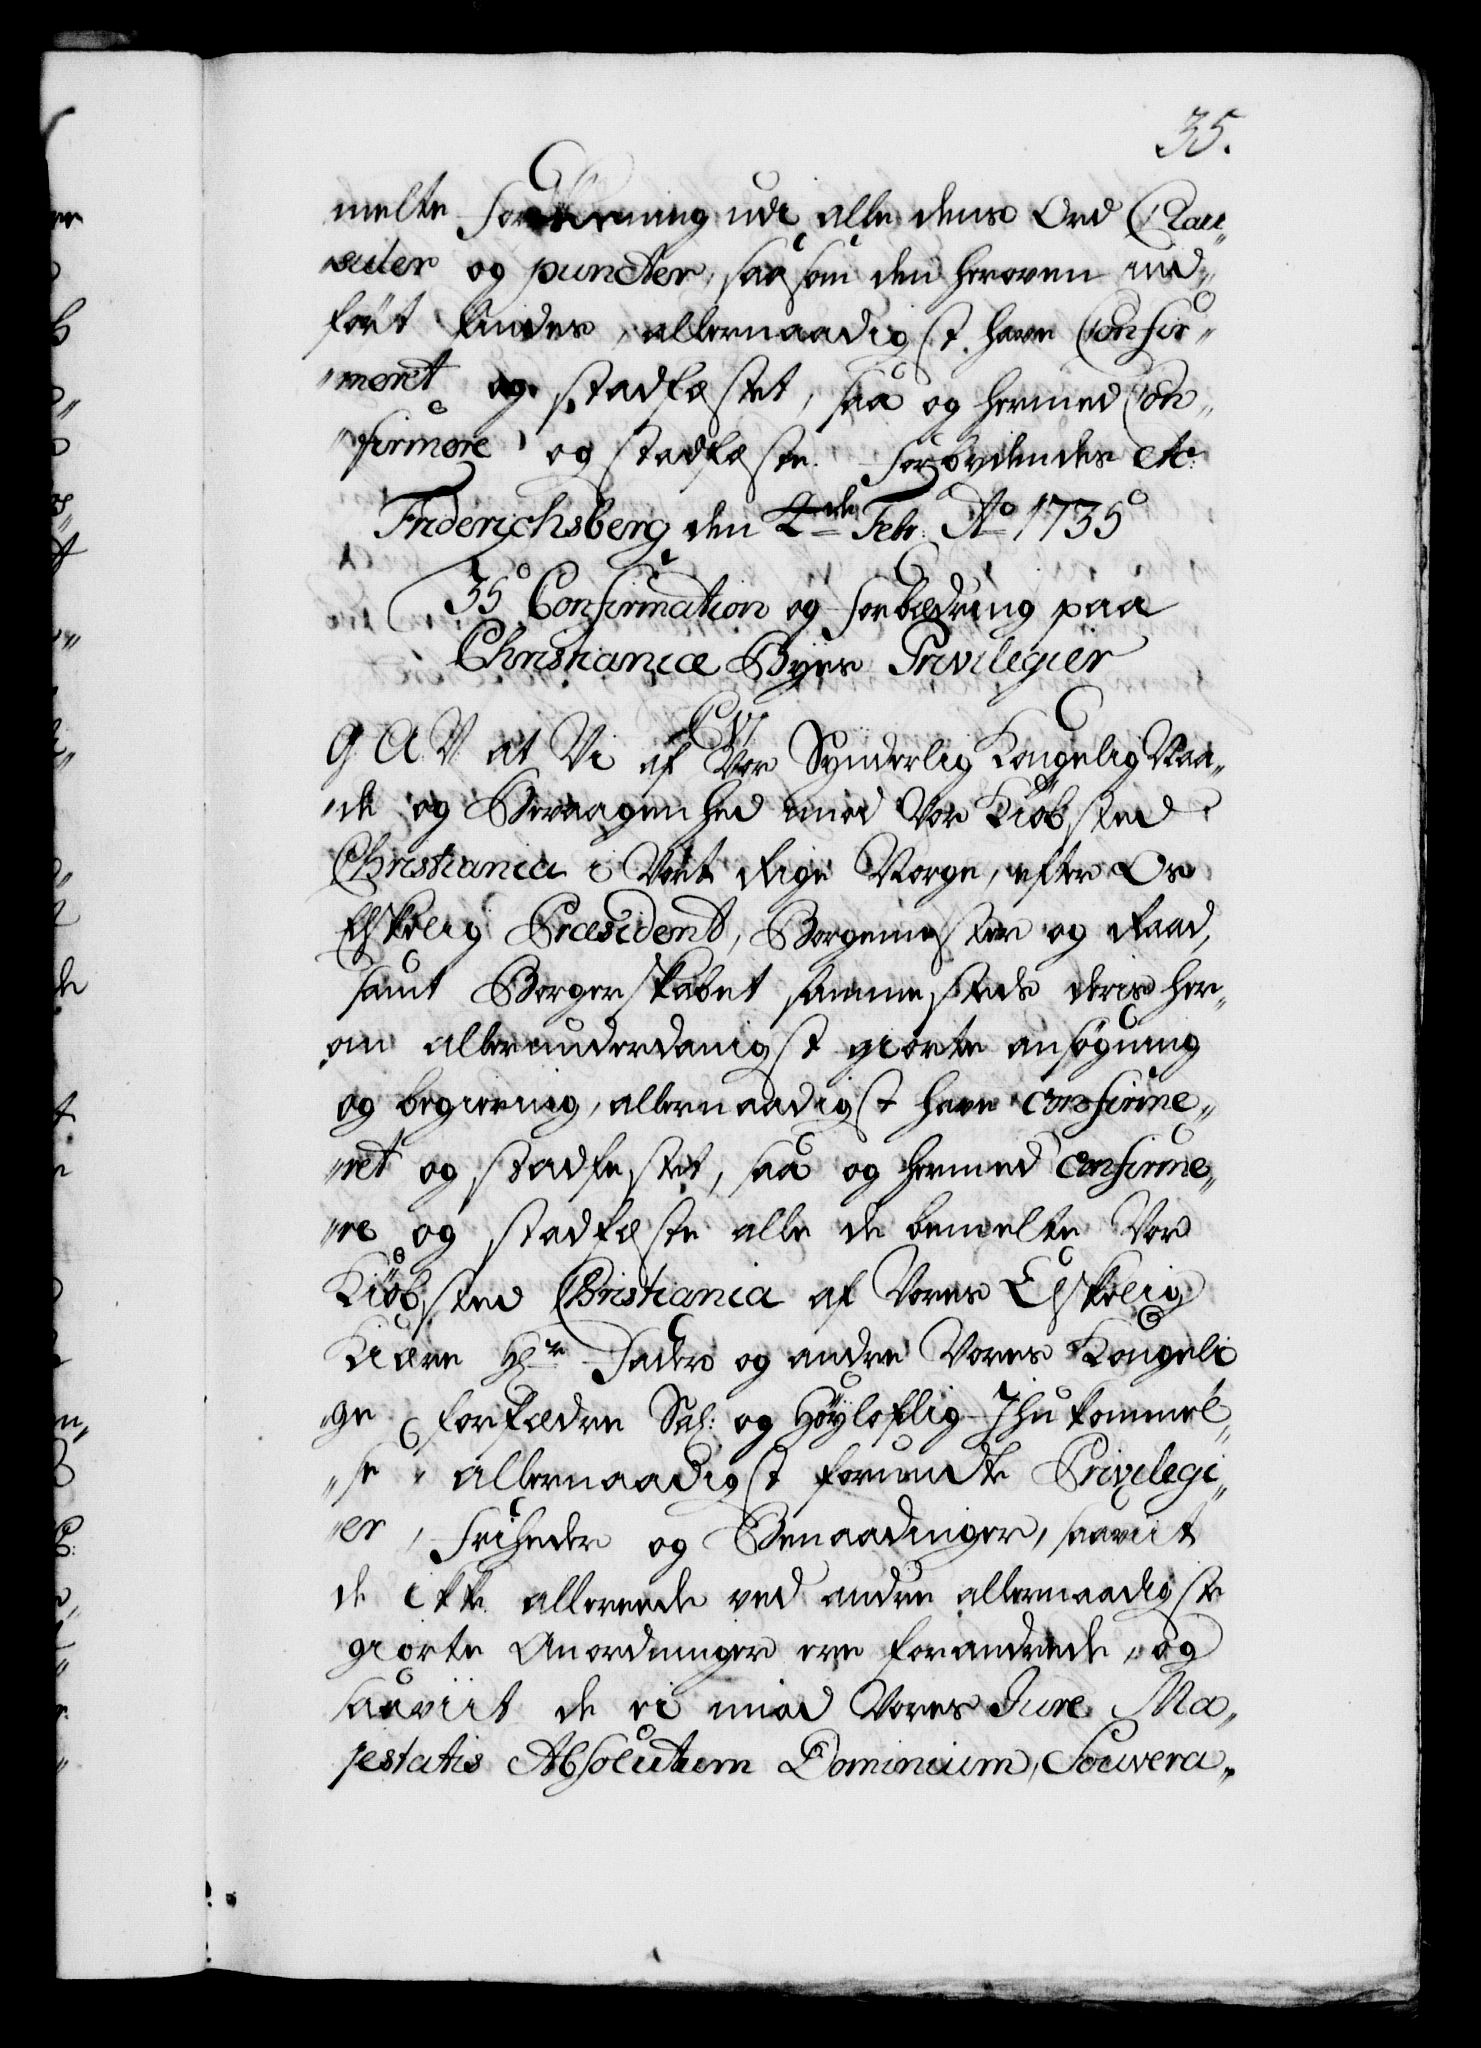 35.
melte Forskrivning udi alle dens Ord Clau„
suler og puncter, saa som den heroven ind„
fört findes, allernaadigst have Confir„
„meret og stadfæstet, saa og hermed Con„
„firmere og stadfæste. Forbydendes etc:
Friderichsberg den 4de Febr. Ao 1735
35 Confirmation og Forbædring paa
Christianiæ Byes Privilegier
C VI
G A V at Vi af Vor Synderlig Kongelig Naa„
„de og Bevaagenhed imod Vor Kiöbsted
Christiania i Vort Rige Norge, efter Os
Elskelig Præsident, Borgemester og Raad,
samt Borgerskabet sammesteds deris her„
om allerunderdanigst giorte ansøgning
og begiering, allernaadigst have confirme„
„ret og stadfestet, saa og hermed confirme„
„re og stadfæste alle de bemelte Vor
Kiöbsted Christiania af Vores Elskelig
Kiære Hr Fader og andre Vores Kongeli
„ge Forfædre Sal: og Høyloflig Ihukommel„
„se allernaadigst forundte Privilegi„
„er, Friheder og Benaadinger, saaviit
de ikke allerede ved andre allernaadigste
giorte Anordninger ere forandrede, og
saaviit de ei imod Vores Jure Ma„
jestatis Absolutum Dominium, Souvera„